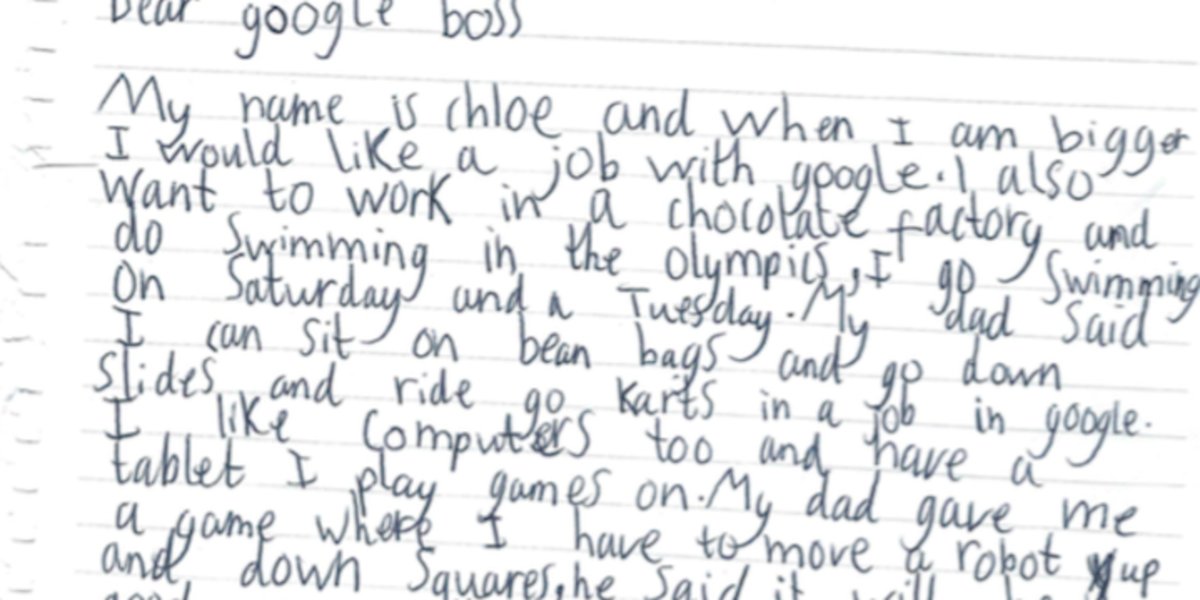 Dear google boss
My name is chloe and when I am bigger
I would like a job with google. I also
want to work in a chocolate factory and
do swimming in the olympics, I go Swimming
on Saturday and a Tuesday. My dad said
I can sit on bean bags and go down
slides and ride go karts in a job in google.
I like computers too and have a
tablet I play games on. My dad gave me
a game where I have to move a robot up
and down squares, he said it will be
good